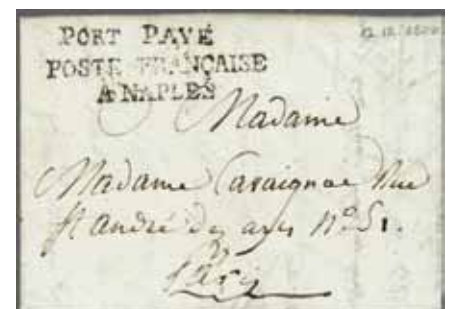 PORT PAYÉ
POSTE FRANÇAISE
A NAPLES
Madame
Madame Cavaignac Rue
St André des arts N° 51.
Paris